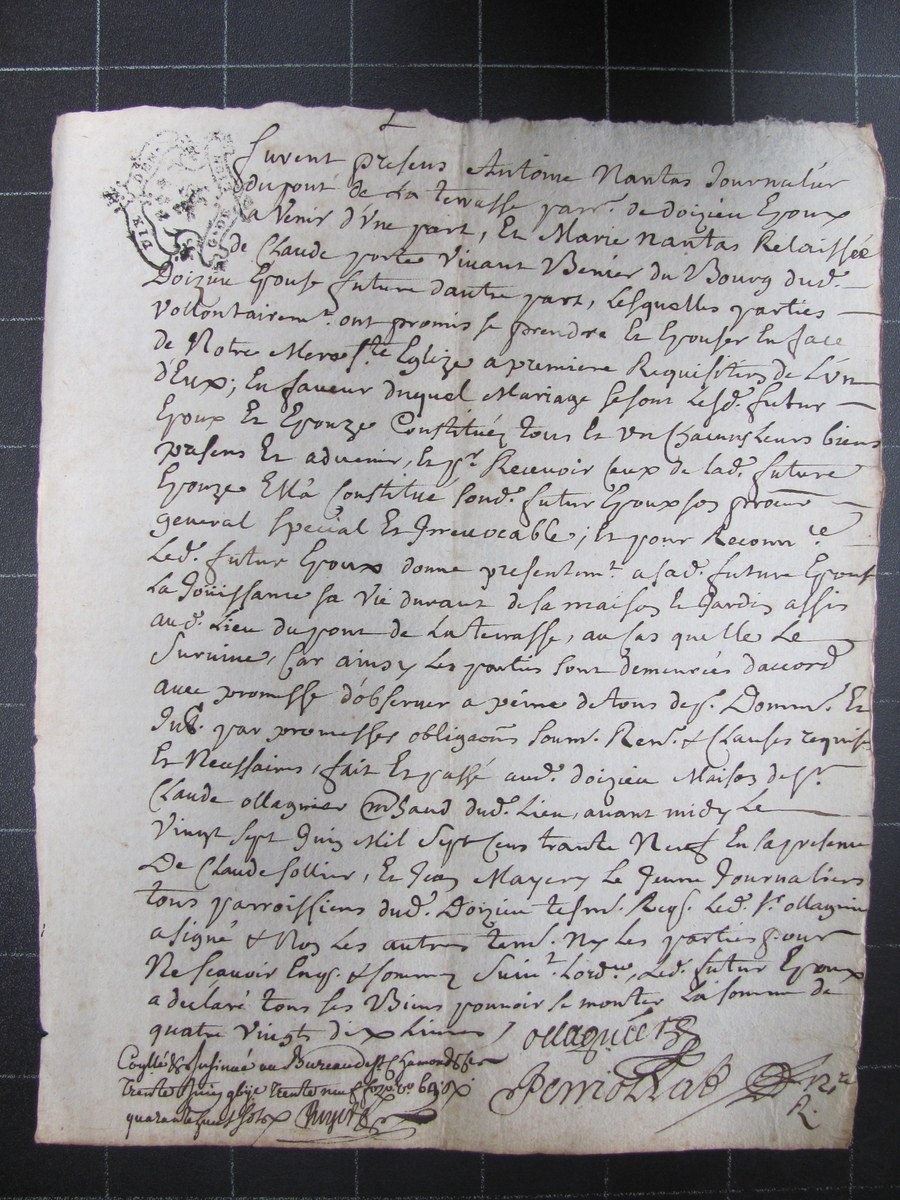 furent presens Antoine Nantas Journalier
du pont de La terrasse parr. de doizieu Epoux
a Venir d'Vne part, Et Marie nantas Relaissée
de Claude porte Vivant Benier du Bourg dud.
Doizieu Epouse future d'autre part, Lesquelles parties
vollontairemt. ont promis se prendre Et Epouser En face
de Notre Mere Ste. Eglize a premiere Requisition de L'un
d'Eux; En faveur duquel Mariage se sont Lesd. futur
Epoux Et Epouze Constitués tous Et Vn Chacuns Leurs biens
presens Et advenir, Et pr. Recevoir Ceux de lad. future
Epouze Ella Constitué sond. futur Epoux son
general special Et Irrevocable; Et pour Reconnce.
Led. futur Epoux donne presentemt. a sad. future Epouse
La Jouissance sa vie durant de sa maison Et Jardin assis
aud. Lieu du pont de La terrasse, au Cas quelle Le
Survive, Car ainsy Les parties sont demeurées d'accord
avec promesse d'observer a peine de tous desp. Domm. Et
Int. par promesses obligaons soum. Ren. & Clauses requises
Et Necessaires, fait Et passé aud. doizieu Maison de Sr.
Claude ollagnier dud. Lieu, avant midy Le
Vingt sept Juin Mil Sept Cens trante Neuf En la presence
De Claude sollier, Et Jean Mayery Le Jeune Journaliers
tous parroissiens dud. Doizieu tesm. Reqs. Led. Sr. ollagnier
a signé & Non Les autres tem. Ny Les parties pour
Ne scavoir Enqs. & sommez Suivt. Lord. Led. futur Epoux
a declaré tous ses Biens pouvoir se monter La somme de
quatre vingts dix Livres / ollagnier
Conllé & Insinué au Bureau de St. Chamond Le
Trente Juin trente neuf
quarante huit sols